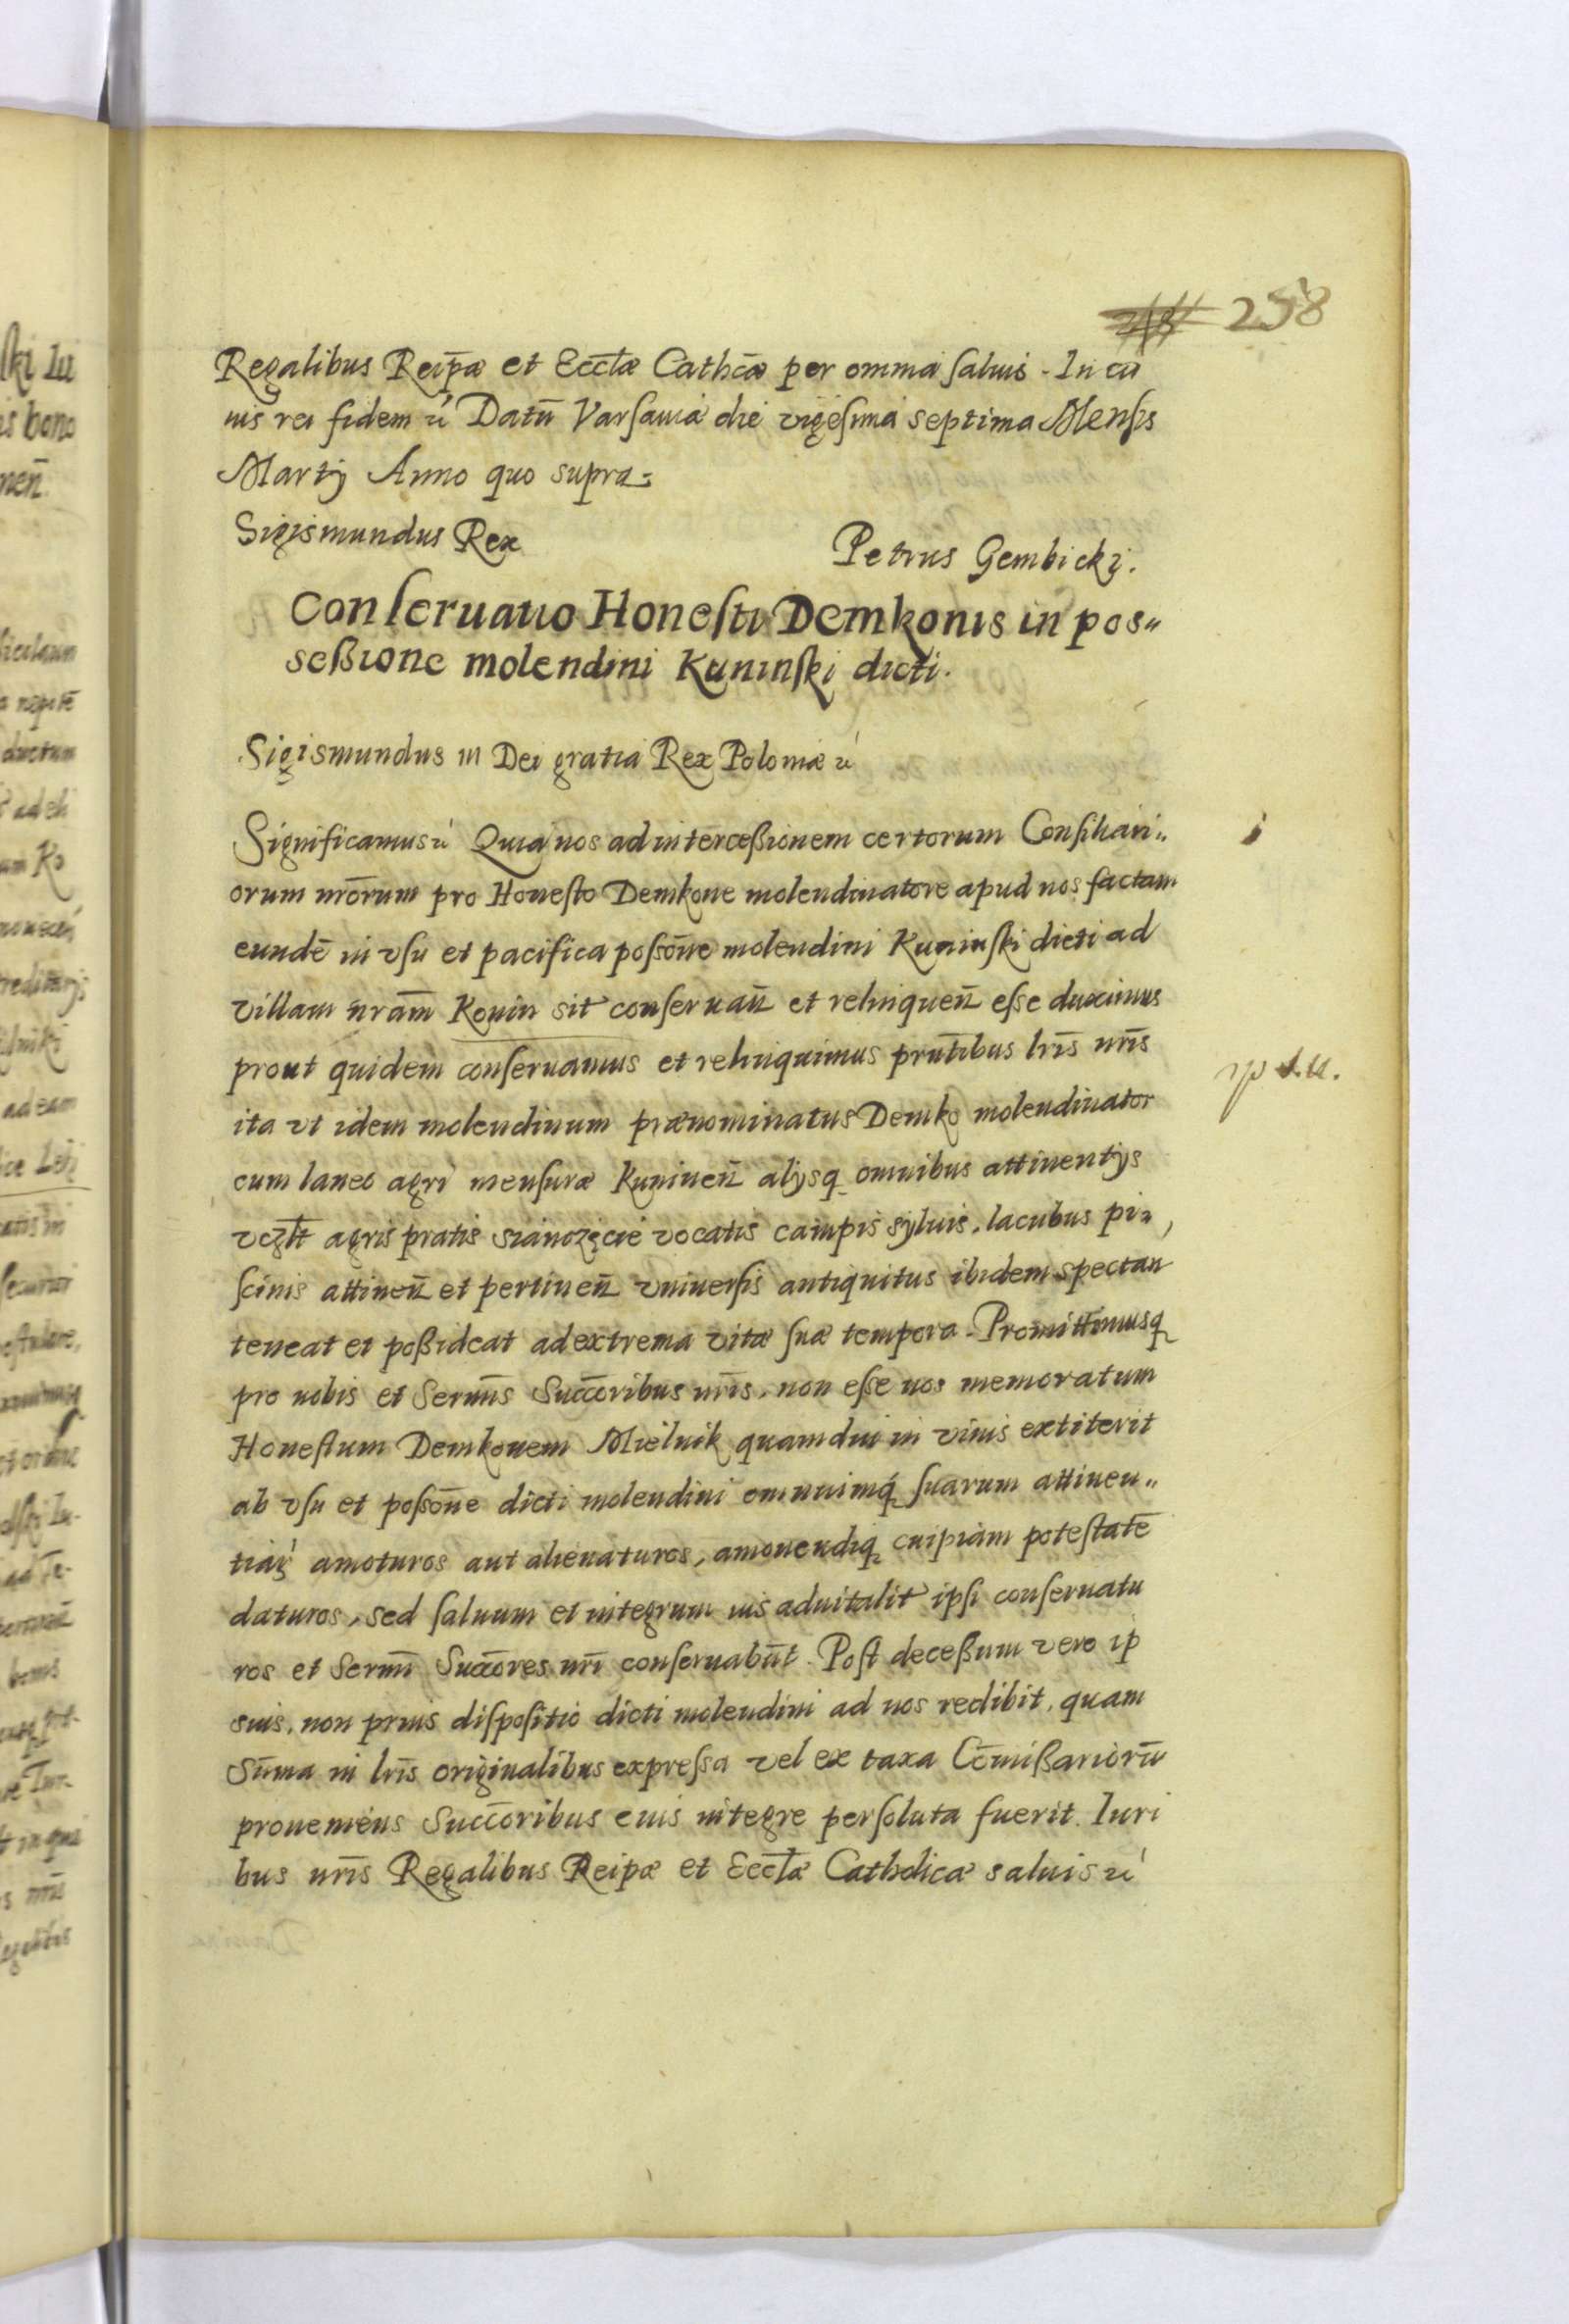 258
Regalibus Reip̄æ et Eccl̄æ Cathcæ per omnia saluis. In cu
ius rei fidem &c Datū Varsauiæ die vigesima septima Mensis
Martij Anno quo supra.
Sigismundus Rex
Petrus Gembicki.
Conseruatio Honesti Demkonis in pos„
seßione molendini Kuninski dicti.
Sigismundus III Dei gratia Rex Poloniæ &c
Significamus &c Quia nos ad interceßionem certorum Consiliari„
orum nrōrum pro Honesto Demkone molendinatore apud nos factam
eundē in vsu et pacifica possōne molendini Kuninski dicti ad
villam nrām Konin sit conseruan̄ et relinquen̄ esse duximus
prout quidem conseruamus et relinquimus prntibus lrīs nrīs
ita vt idem molendinum prænominatus Demko molendinator
cum laneo agri mensuræ Kuninen̄ alijsq omnibus attinentijs
vczlt agris pratis sianozęcie vocatis campis syluis, lacubus pi„
scinis attinen̄ et pertinen̄ vniuersis antiquitus ibidem spectan
teneat et poßideat ad extrema vitæ suæ tempora. Promittimusq
pro nobis et Sermīs Succōribus nrīs, non esse nos memoratum
Honestum Demkonem Mielnik quamdiu in viuis extiterit
ab vsu et possōne dicti molendini omniumq suarum attinen„
tiaȝ amoturos aut alienaturos, amouendiq cuipiam potestatē
daturos, sed saluum et integrum ius aduitalit ipsi conseruatu
ros et Sermī Succōres nrī conseruabūt. Post deceßum vero ip
sius, non prius dispositio dicti molendini ad nos redibit, quam
Sūma in lrīs originalibus expressa vel ex taxa Cōmißariorū
proueniens Succōribus eius integre persoluta fuerit. Iuri
bus nrīs Regalibus Reipæ et Eccl̄æ Catholicæ saluis &c